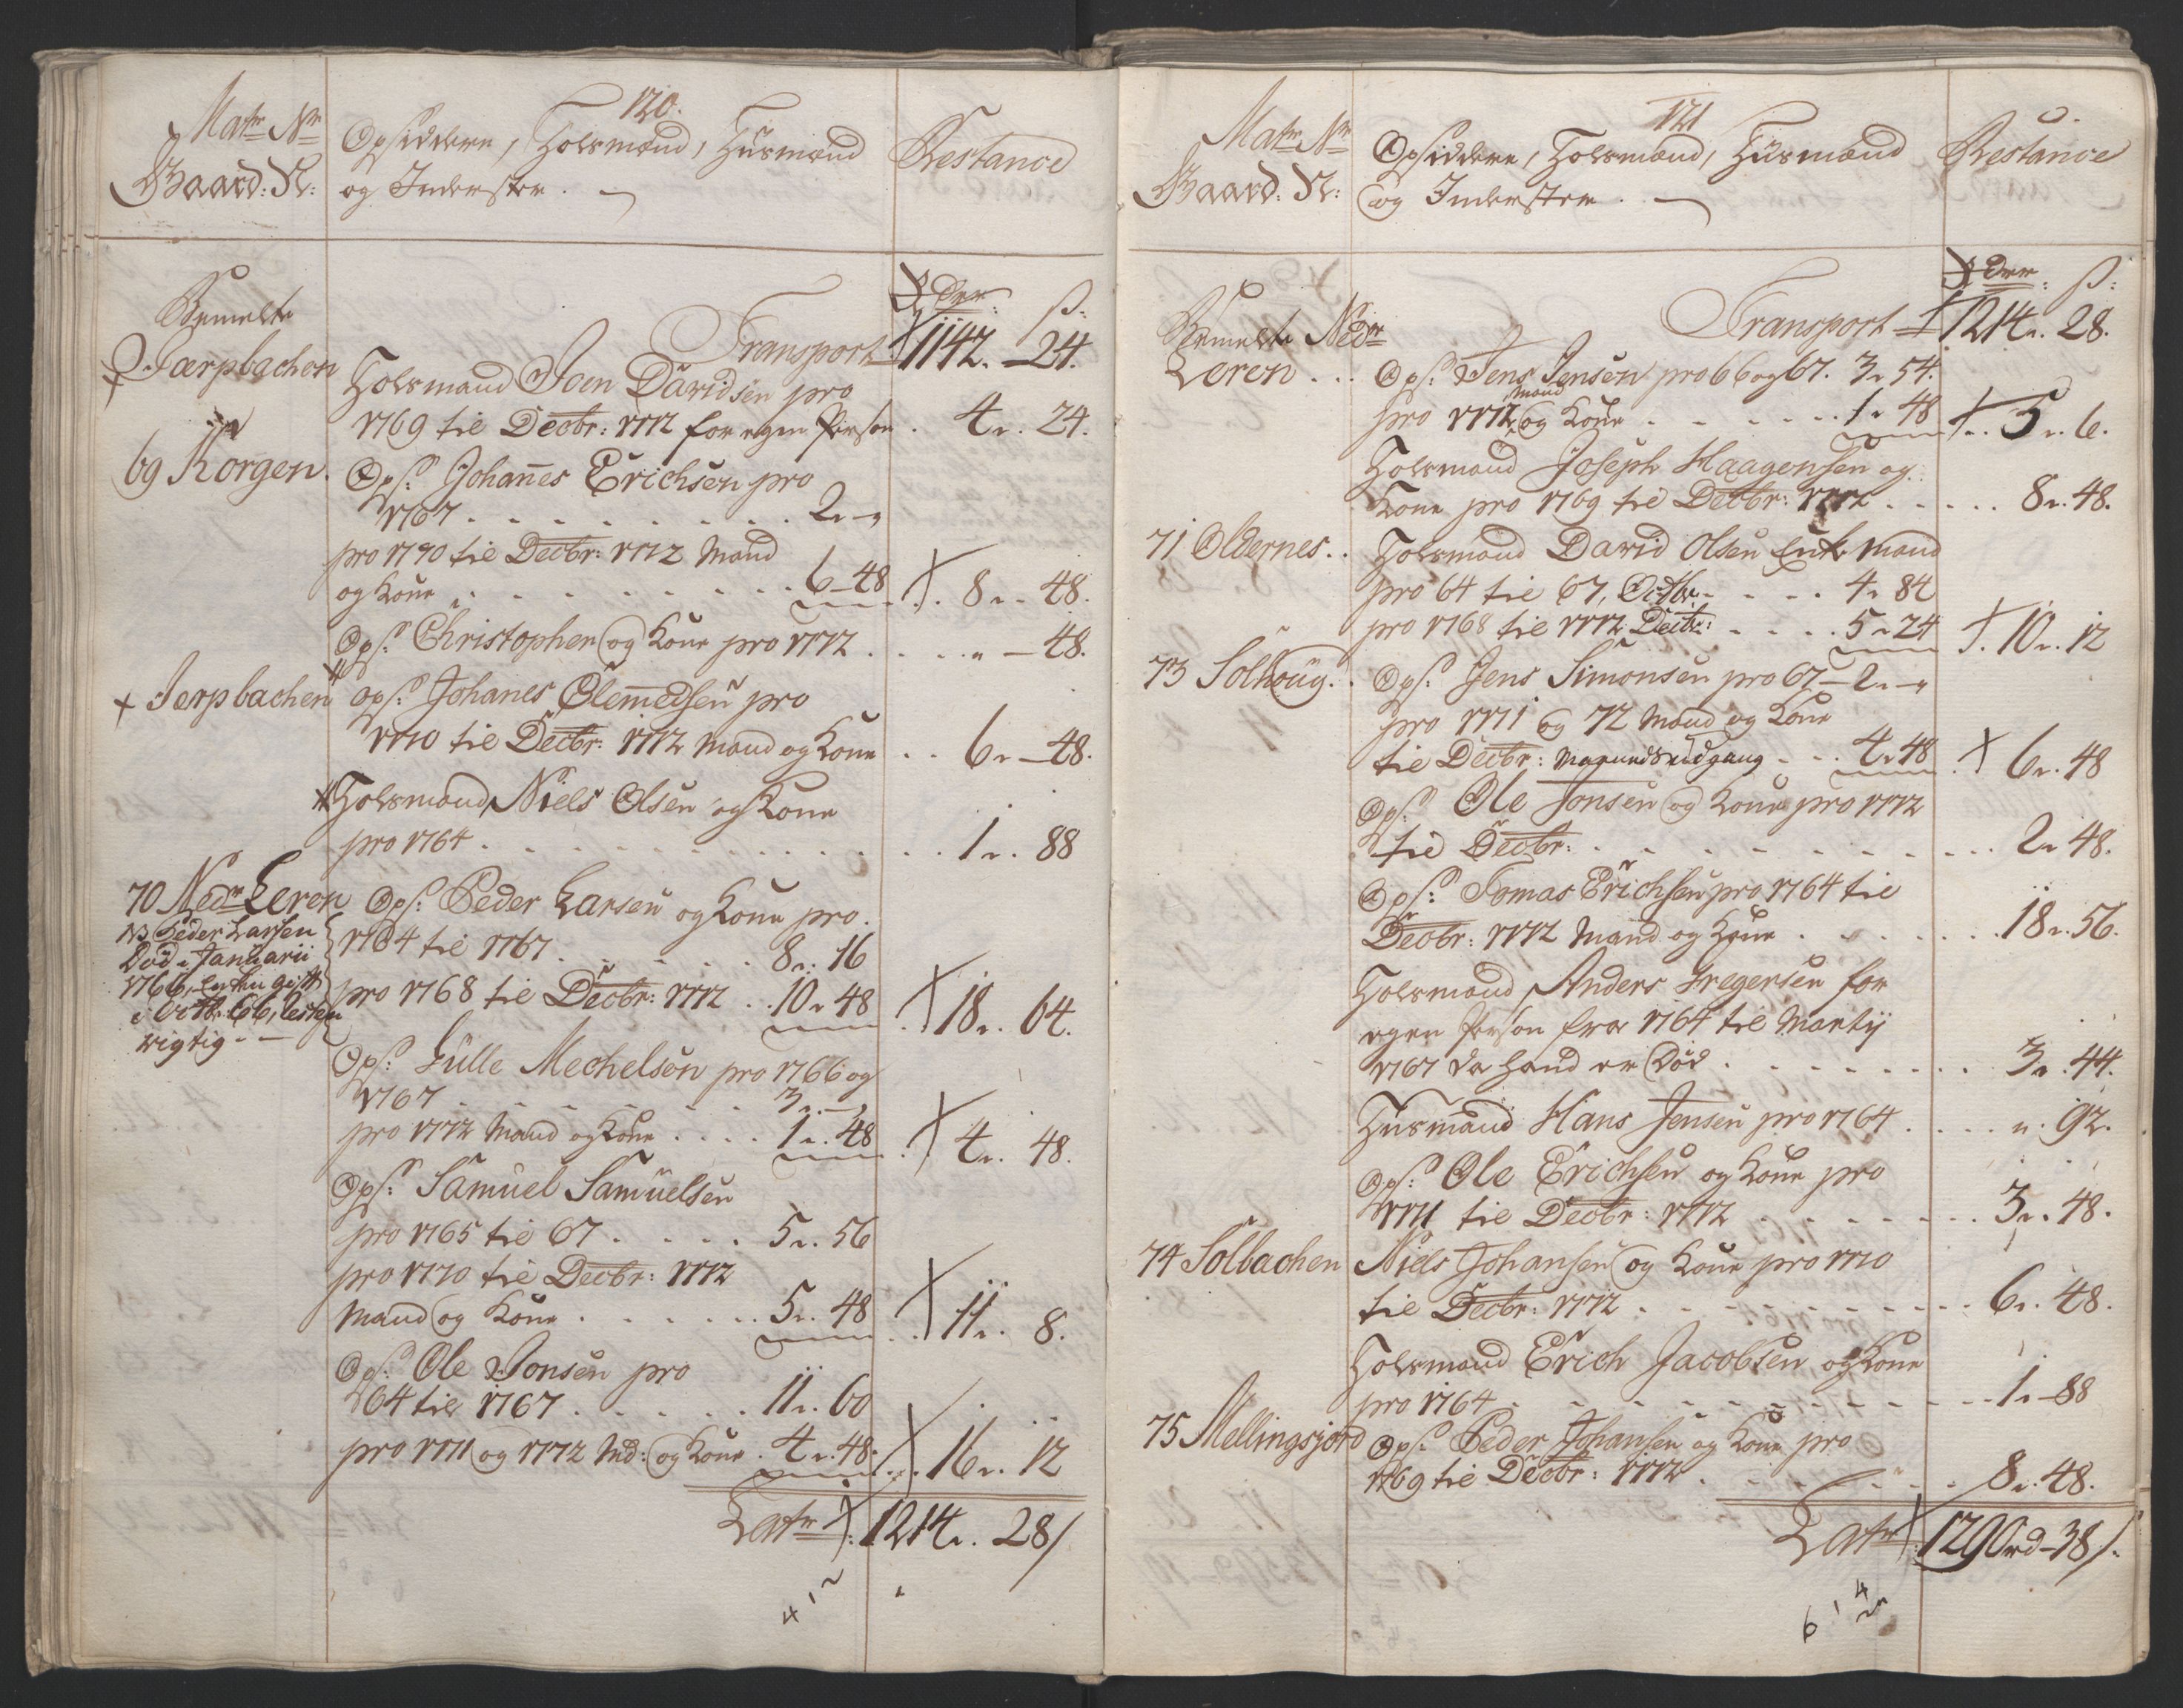 120.
Matr Nr
Gaard: N:
Opsiddere, Folsmænd, Husmænd
og Inderster.
Restance
Rdlr: ß:
Bemelte
Jærpbachen
Transport 1142. 24.
Folsmand Joen Davidsen pro
1769 til Decbr: 1772 for egen Person . 4. 24.
69 Korgen.
Ops: Johannes Erichsen pro
1767 . . . . . . . . . 2 -
pro 1770 til Decbr: 1772 Mand
og Kone . . . . . . . . 6 - 48 . 8. 48.
Ops: Christopher og Kone pro 1772 . . . . - 48.
+ Jerpbachen
Ops: Johanes Clemedsen pro
1770 til Decbr: 1772 Mand og Kone . . 6 - 48.
Folsmand Niels Olsen og Kone
pro 1764 . . . . . . . . . 1. 88
70 Nedr Leren
Ops: Peder Larsen og Kone pro
NB Peder Larsen
Død i Januarii
1766, Enken gift
i Octbr. 66, resten
rigtig - -
1764 til 1767 . . . . . . 8. 16
pro 1768 til Decbr: 1772 . . 10. 48 . 18. 64.
Ops: Gulle Mechelsen pro 1766 og
1767 . . . . . . . 3 -
pro 1772 Mand og Kone . . . . 1. 48 . 4. 48.
Ops: Samuel Samuelsen
pro 1765 til 67 . . . . . 5. 56
pro 1770 til Decbr: 1772
Mand og Kone . . . . . . 5. 48 . 11. 8.
Ops: Ole Jonsen pro
64 til 1767 . . . . . . 11. 60
pro 1771 og 1772 Md: og Kone . 4. 48. . 16. 12
Latr 1214. 28
121
Matr Nr
Gaard: N:
Opsiddere, Folsmænd, Husmænd
og Inderster. .
Restance
Rdlr: ß:
Transport 1214. 28.
Bemelte Nedr
Leren . . .
Ops: Jens Jensen pro 66 og 67. 3. 54.
pro 1772, Mand og Kone . . . . . . 1. 48 . 5. 6.
Folsmand Joseph Haagensen og
Kone pro 1769 til Decbr: 1772 . . . . . 8. 48.
71 Oldernes. .
Folsmand David Olsen Enk Mand
pro 64 til 67, Octbr. . . . . 4. 84
pro 1768 til 1772 Decbr: . . . . 5. 24 . 10. 12
73 Solhoug. .
Ops: Jens Simonsen pro 67 - 2 -
pro 1771 og 72 Mand og Kone
til Decbr: . . . 4. 48 . 6. 48
Ops: Ole Jonsen og Kone pro 1772
til Decbr: . . . . . . . . . . . 2. 48.
Ops: Tomas Erichsen pro 1764 til
Decbr: 1772 Mand og Kone . . . . . . . 18. 56.
Folsmand Anders Gregersen for
egen Person fra 1764 til Martij
1767 da hand er Død . . . . . . . . 3. 44.
Husmand Hans Jensen pro 1764 . . . . 92.
Ops: Ole Erichsen og Kone pro
1771 til Decbr: 1772 . . . . . . . . 3. 48.
74 Solbachen
Niels Johansen og Kone pro 1770
til Decbr: 1772 . . . . . . . . . . 6. 48.
Folsmand Erich Jacobsen og Kone
pro 1764 . . . . . . . . . . . 1 - 88
75 Mellingsjord
Ops: Peder Johansen og Kone pro
1769 til Decbr: 1772 . . . . . . 8. 48.
Latr 1290 rd - 38 ß.